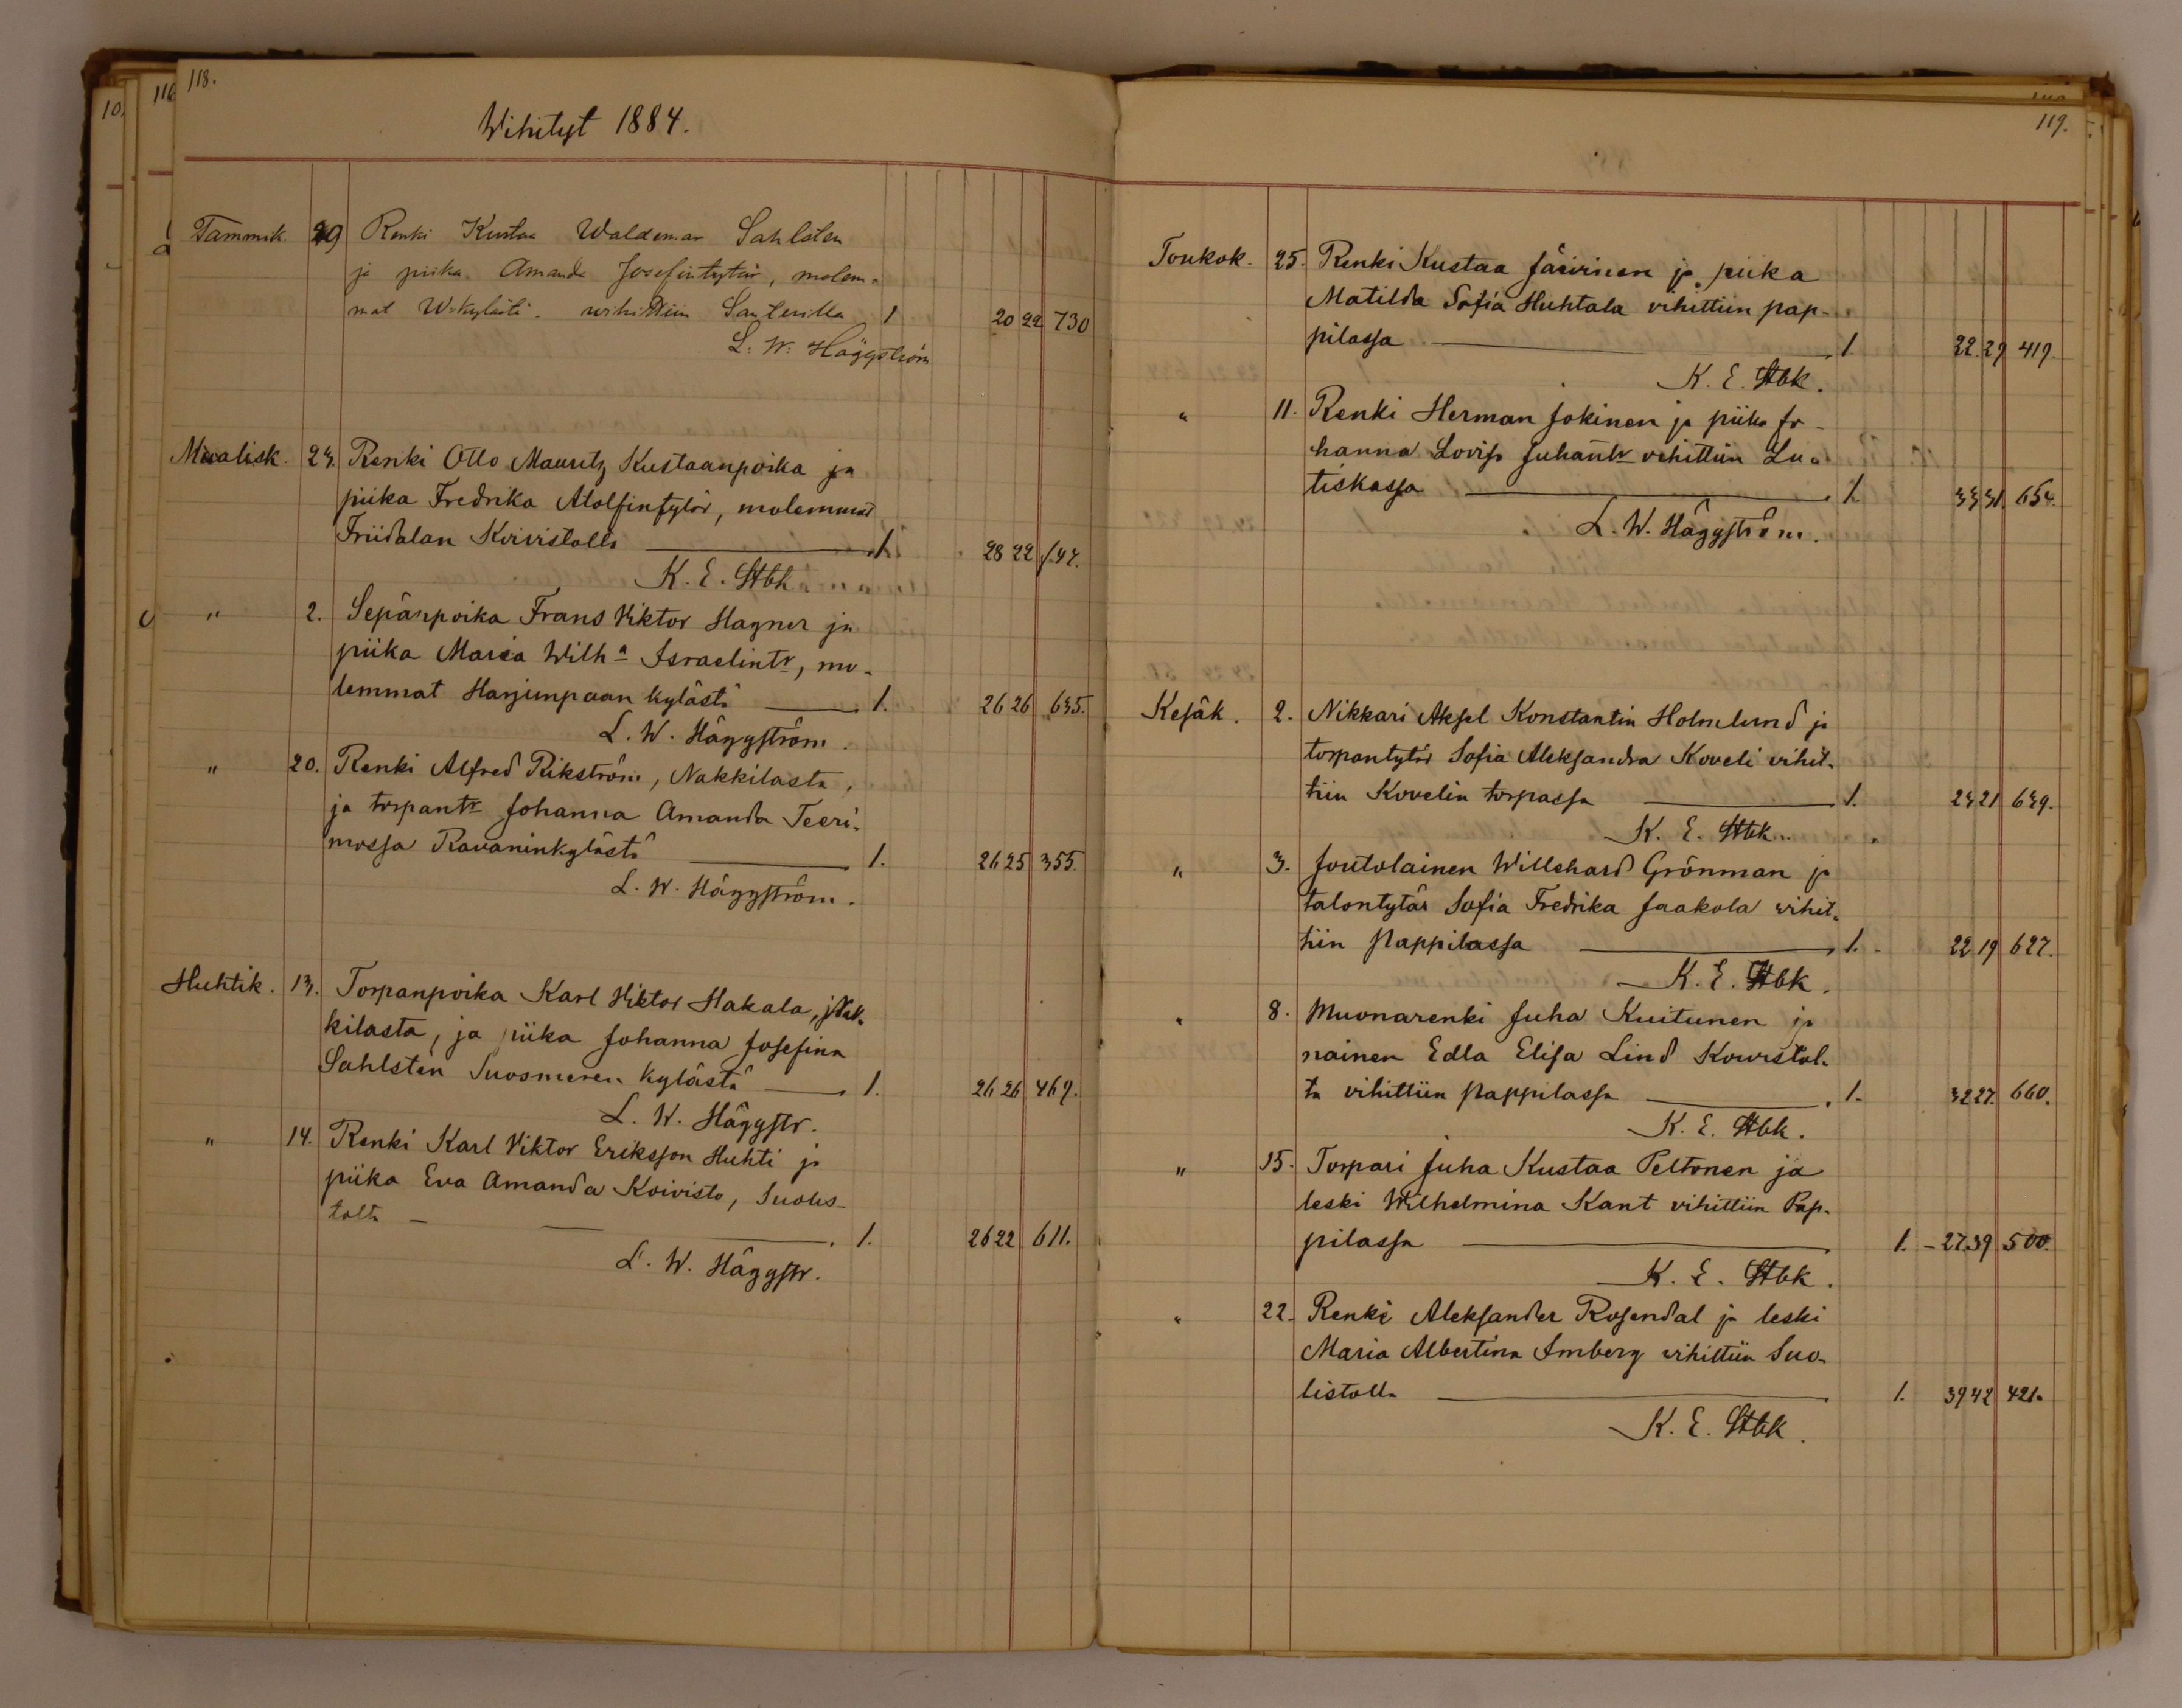 118.
116
10.
Wihityt 1884.
Tammik. 29 Renki Kustaa Waldemar Sahlsten
ja piika Amanda Josefintytär, molem-
mat W-kylästä. wihittiin Santerilla 1 20 22 730
L. W. Häggström
Maalisk. 23. Renki Otto Mauritz Kustaanpoika ja
piika Fredrika Atolfintytär, molemmat
Friidalan Koivistolla 1. 28 22
K. E. Stbk
" 2. Sepänpoika Frans Viktor Hagner ja
piika Maria Wilha Israelintr, mo-
lemmat Harjunpaan kylästä 1. 26 26 635.
L. W. Häggström.
" 20. Renki Alfred Rikström, Nakkilasta,
ja torpantr Johanna Amanda Teeri-
mossa Ravaninkylästä 1. 26 25 355.
L. W. Häggström.
Huhtik. 13. Torpanpoika Karl Viktor Hakala, Nak-
kilasta, ja piika Johanna Josefina
Sahlstén Suosmeren kylästä 1. 26 26 469.
L. W. Häggstr.
" 14. Renki Karl Viktor Eriksson Huhti ja
piika Eva Amanda Koivisto, Suolis-
talta 1. 26 22 611.
L. W. Häggstr.
119.
Toukok. 25. Renki Kustaa Järvinen ja piika
Matilda Sofia Huhtala vihittiin pap-
pilassa 1. 22. 29 419.
K. E. Stbk.
" 11. Renki Herman Jokinen ja piika Jo-
hanna Lovisa Juhantr vihittiin Luo-
tiskassa 1. 33 31 654.
L. W. Häggström.
Kesäk. 2. Nikkari Aksel Konstantin Holmlund ja
torpantytär Sofia Aleksandra Koveli vihit-
tiin Kovelin torpassa 1. 23 21 639.
K. E. Stbk.
" 3. Joutolainen Willehard Grönman ja
talontytär Sofia Fredrika Jaakola vihit-
tiin Pappilassa 1. 22 19 627.
K. E. Stbk.
" 8. Muonarenki Juha Kuitunen ja
nainen Edla Elisa Lind Koivistol-
ta vihittiin Pappilassa 1. 32 27. 660.
K. E. Stbk.
" 15. Torpari Juha Kustaa Peltonen ja
leski Wilhelmina Kant vihittiin Pap-
pilassa 1. - 27. 39 500.
K. E. Stbk.
" 22. Renki Aleksander Rosendal ja leski
Maria Albertina Imberg vihittiin Suo-
listolla 1. 39 42 421.
K. E. Stbk.